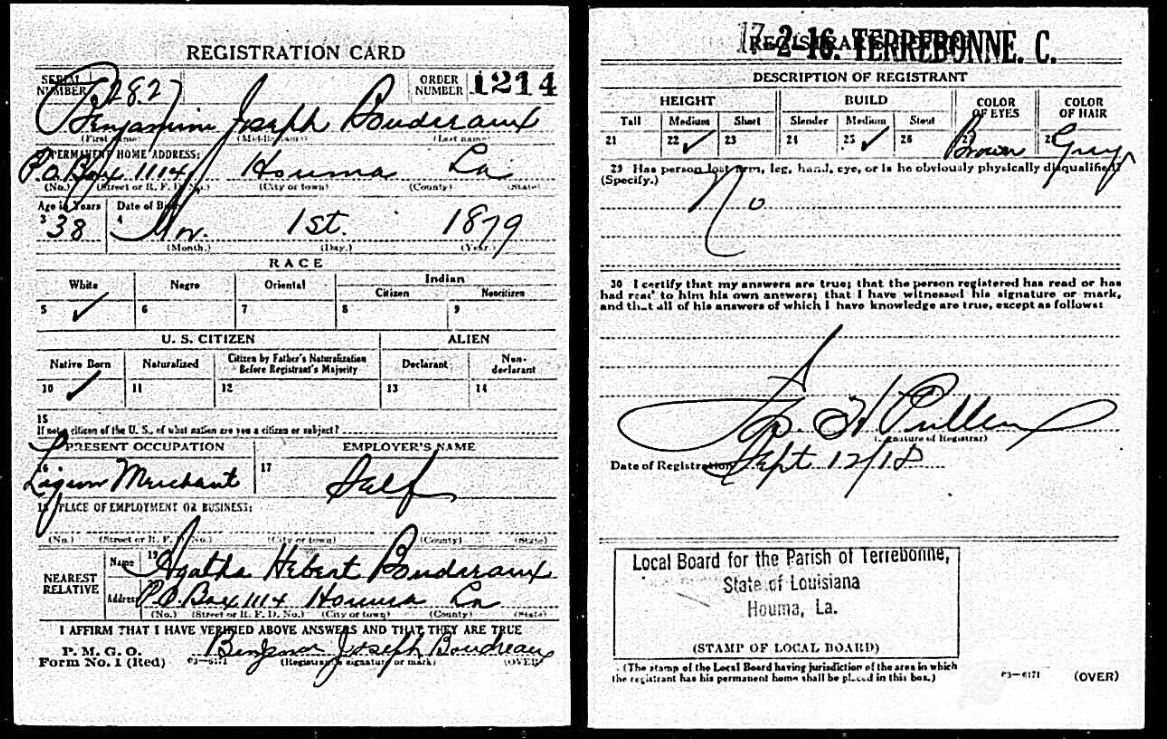 REGISTRATION CARD
SERIAL NUMBER 2827 ORDER NUMBER 1214
Benjamin Joseph Bouderaux
(First name) (Middle name) (Last name)
PERMANENT HOME ADDRESS:
P.O. Box 1114 Houma La
(No.) (Street or R. F. D. No.) (City or town) (County) (State)
Age in Years Date of Birth
3 38 4 1st. 1879
(Month.) (Day.) (Year.)
RACE
White Negro Oriental Indian
Citizen Noncitizen
5 ✓ 6 7 8 9
U. S. CITIZEN ALIEN
Native Born Naturalized Citizen by Father's Naturalization Before Registrant's Majority Declarant Non-declarant
10 ✓ 11 12 13 14
15
If not a citizen of the U. S., of what nation are you a citizen or subject?
PRESENT OCCUPATION EMPLOYER'S NAME
16 Merchant 17 Self
18 PLACE OF EMPLOYMENT OR BUSINESS:
(No.) (Street or R. F. D. No.) (City or town) (County) (State)
NEAREST RELATIVE
Name 19 Agatha Hebert Bouderaux
Address P.O. Box 1114 Houma La
(No.) (Street or R. F. D. No.) (City or town) (County) (State)
I AFFIRM THAT I HAVE VERIFIED ABOVE ANSWERS AND THAT THEY ARE TRUE
P. M. G. O.
Form No. 1 (Red) 03—6171 Joseph Boudreaux
(Registrant's signature or mark) (OVER)
17-2-16. TERREBONNE. C.
DESCRIPTION OF REGISTRANT
HEIGHT BUILD COLOR OF EYES COLOR OF HAIR
Tall Medium Short Slender Medium Stout
21 22 ✓ 23 24 25 ✓ 26 27 Brown 28 Gray
29 Has person lost arm, leg, hand, eye, or is he obviously physically disqualified?
(Specify.)
No
30 I certify that my answers are true; that the person registered has read or has
had read to him his own answers; that I have witnessed his signature or mark,
and that all of his answers of which I have knowledge are true, except as follows:
H Pullen
(Signature of Registrar)
Date of Registration Sept 12/18
Local Board for the Parish of Terrebonne,
State of Louisiana
Houma, La.
(STAMP OF LOCAL BOARD)
(The stamp of the Local Board having jurisdiction of the area in which
the registrant has his permanent home shall be placed in this box.)
03—6171 (OVER)